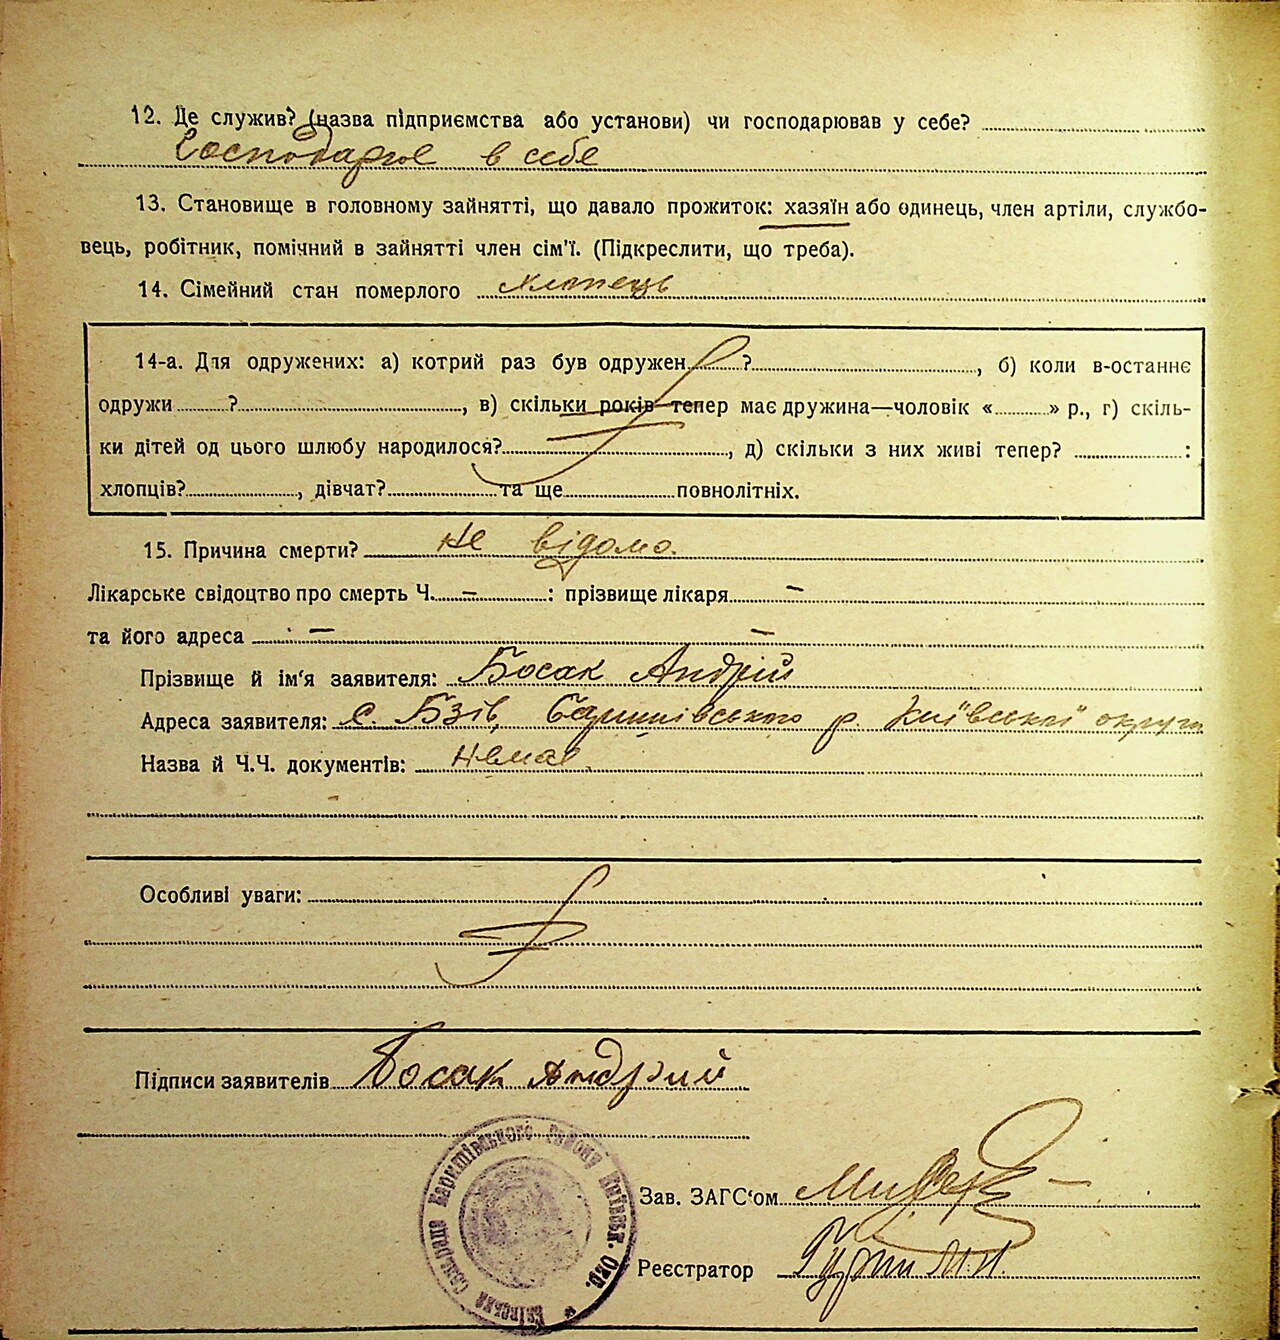 12. Де служив? (назва підприємства або установи) чи господарював у себе?
Господарює в себе
13. Становище в головному зайнятті, що давало прожиток: хазяїн або одинець, член артіли, службо-
вець, робітник, помічний в зайнятті член сім'ї. (Підкреслити, що треба).
14. Сімейний стан померлого хлопець
14-а. Для одружених: а) котрий раз був одружен ? , б) коли в-останнє
одружи ? , в) скільки років тепер має дружина—чоловік « » р., г) скіль-
ки дітей од цього шлюбу народилося? , д) скільки з них живі тепер? :
хлопців? , дівчат? та ще повнолітніх.
15. Причина смерти? не відомо.
Лікарське свідоцтво про смерть Ч. — : прізвище лікаря —
та його адреса — —
Прізвище й ім'я заявителя: Босак Андрій
Адреса заявителя: с. Бзів, Баришівського р. Київської округи
Назва й Ч.Ч. документів: немає.
Особливі уваги:
Підписи заявителів Босак Андрий
Бзівська Сільрада Баришівського району Київськ. Окр.
Зав. ЗАГС'ом
Реєстратор